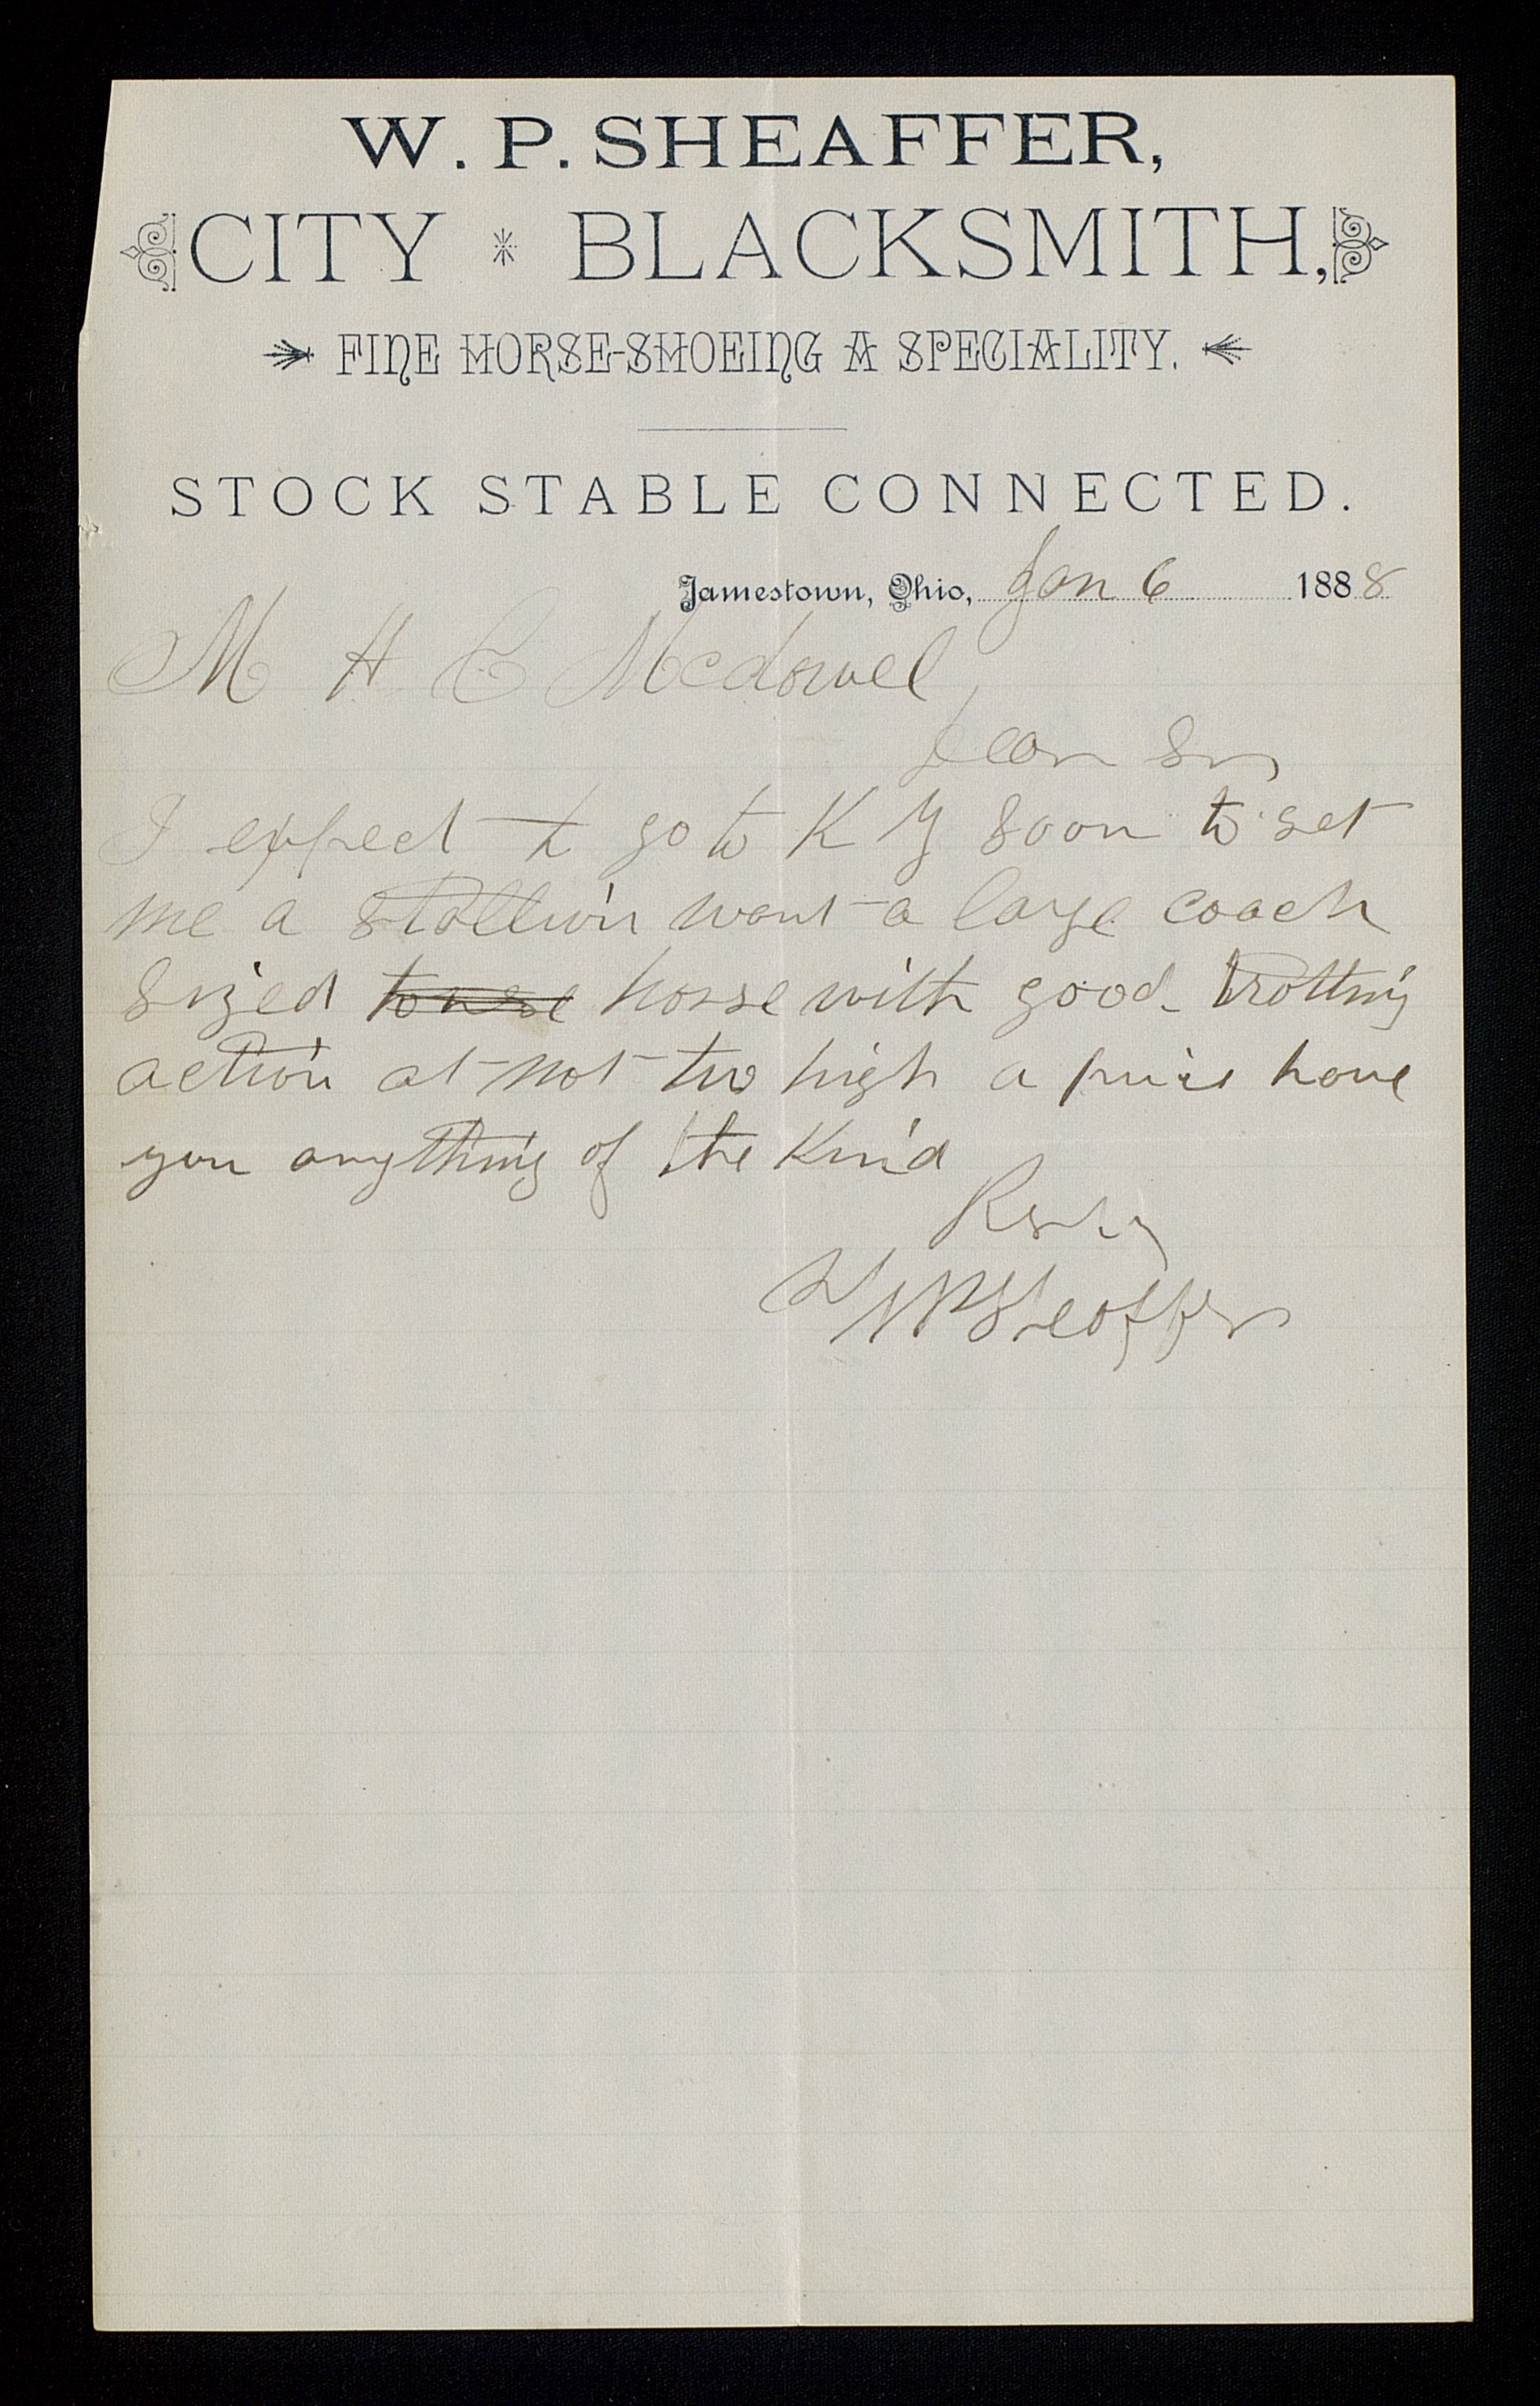 W. P. SHEAFFER,
CITY * BLACKSMITH,
FINE HORSE-SHOEING A SPECIALITY.
STOCK STABLE CONNECTED.
Jamestown, Ohio, Jan 6 1888
M H C Mcdowel
Dear Sir
I expect to go to K Y soon to get
me a stallion want a large coach
sized horse with good trotting
action at not too high a price have
you anything of the kind
W P Sheaffer